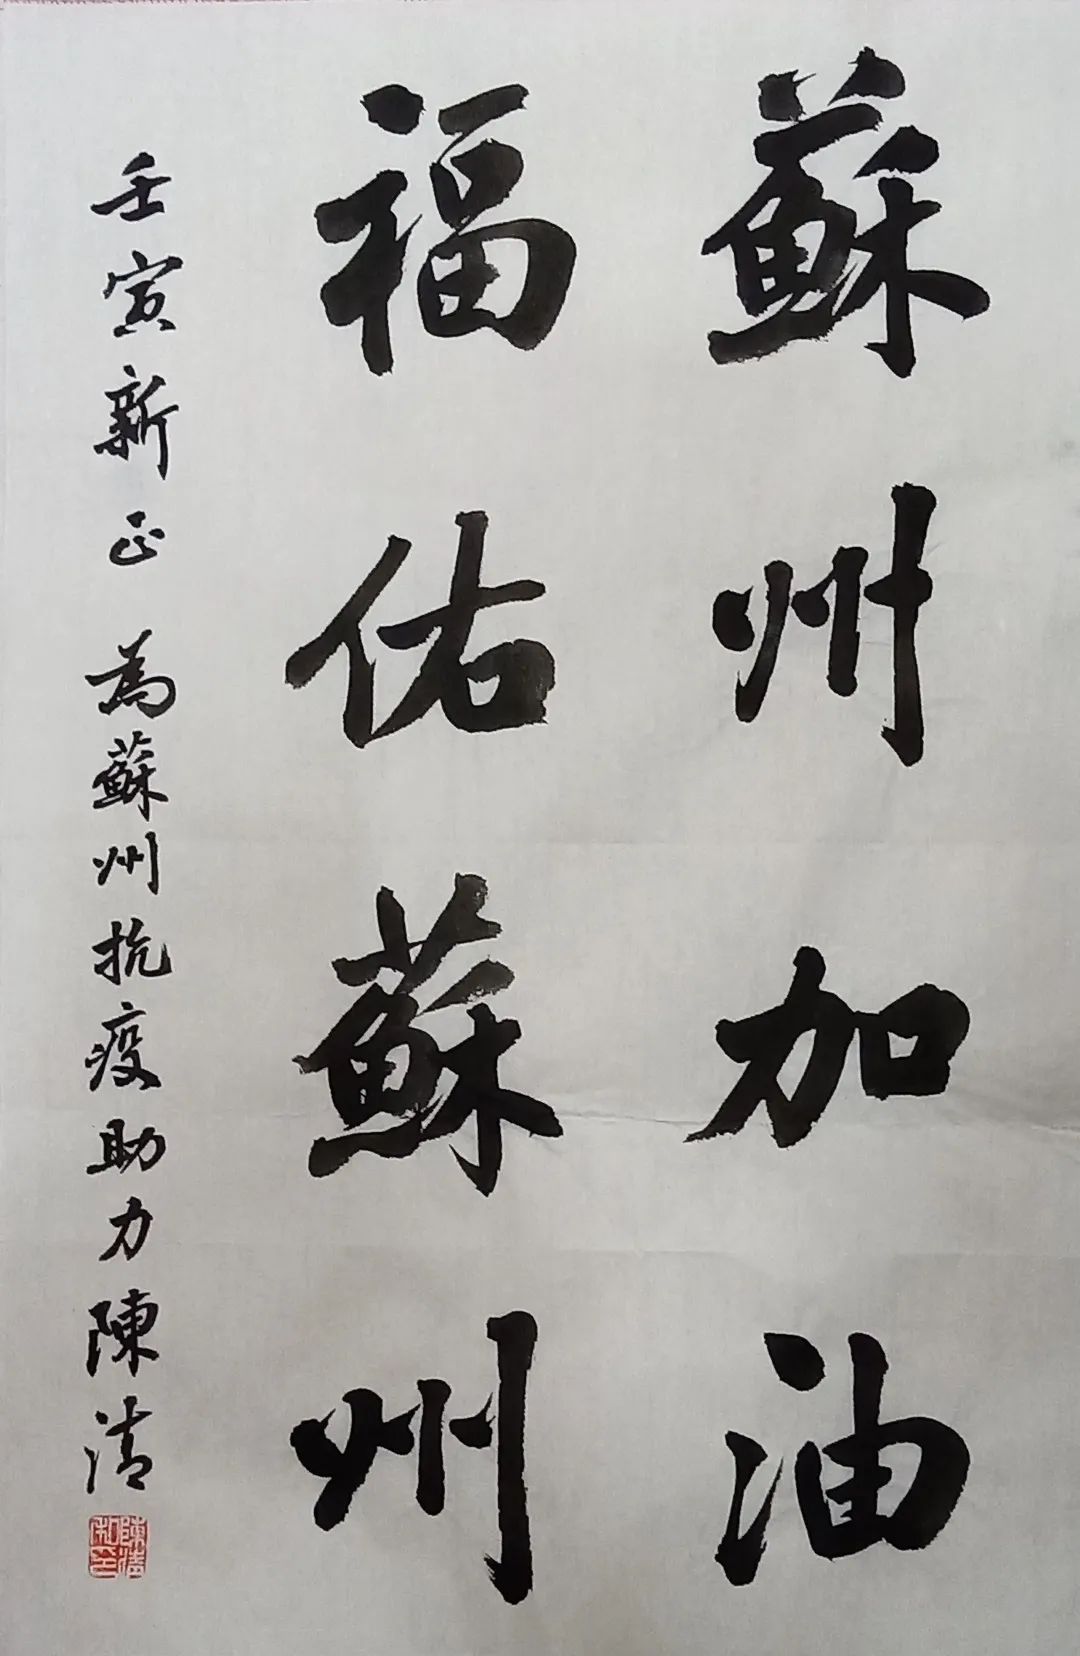 蘇州加油
福佑蘇州
壬寅新正 為蘇州抗疫助力 陳清